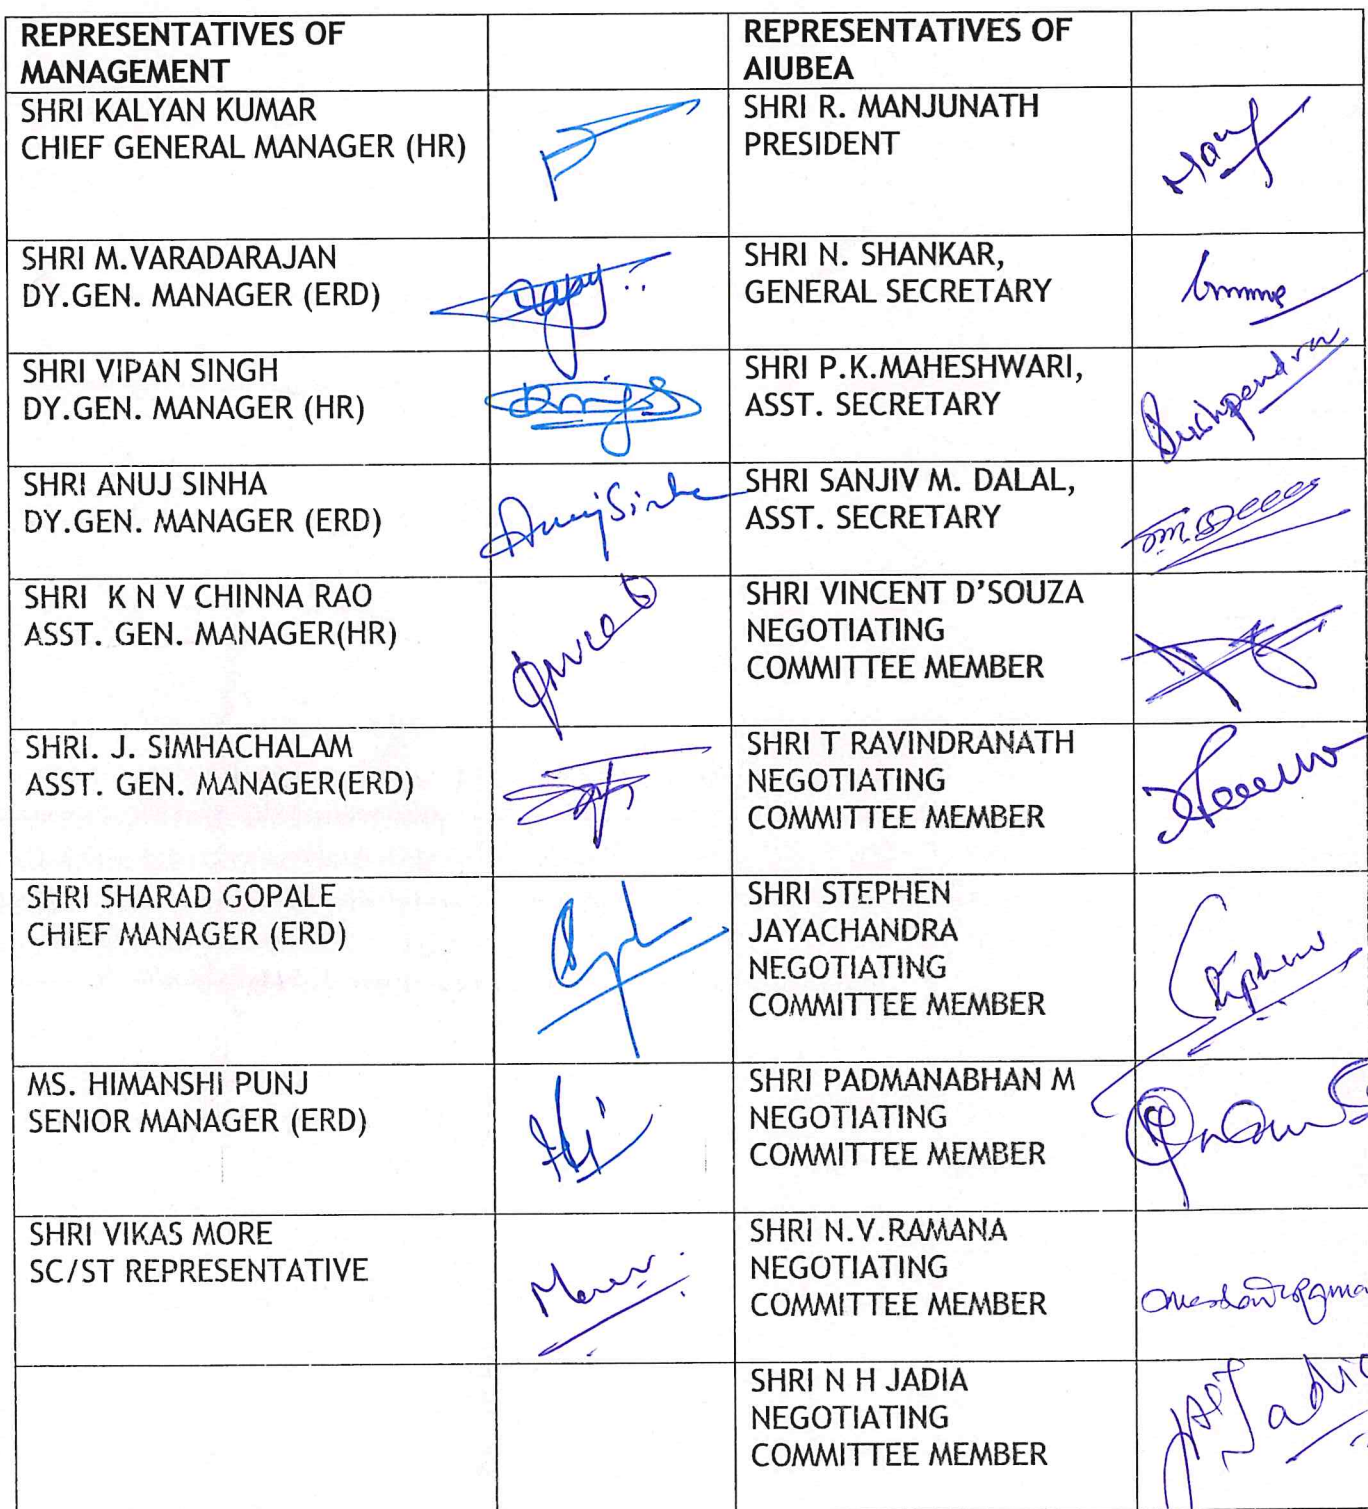 REPRESENTATIVES OF
MANAGEMENT
REPRESENTATIVES OF
AIUBEA
SHRI KALYAN KUMAR
CHIEF GENERAL MANAGER (HR)
SHRI R. MANJUNATH
PRESIDENT
SHRI M.VARADARAJAN
DY.GEN. MANAGER (ERD)
SHRI N. SHANKAR,
GENERAL SECRETARY
SHRI VIPAN SINGH
DY.GEN. MANAGER (HR)
SHRI P.K.MAHESHWARI,
ASST. SECRETARY
SHRI ANUJ SINHA
DY.GEN. MANAGER (ERD)
AnujSinha
SHRI SANJIV M. DALAL,
ASST. SECRETARY
SHRI K N V CHINNA RAO
ASST. GEN. MANAGER(HR)
SHRI VINCENT D'SOUZA
NEGOTIATING
COMMITTEE MEMBER
SHRI. J. SIMHACHALAM
ASST. GEN. MANAGER(ERD)
SHRI T RAVINDRANATH
NEGOTIATING
COMMITTEE MEMBER
SHRI SHARAD GOPALE
CHIEF MANAGER (ERD)
SHRI STEPHEN
JAYACHANDRA
NEGOTIATING
COMMITTEE MEMBER
Stephen
MS. HIMANSHI PUNJ
SENIOR MANAGER (ERD)
SHRI PADMANABHAN M
NEGOTIATING
COMMITTEE MEMBER
SHRI VIKAS MORE
SC/ST REPRESENTATIVE
SHRI N.V.RAMANA
NEGOTIATING
COMMITTEE MEMBER
SHRI N H JADIA
NEGOTIATING
COMMITTEE MEMBER